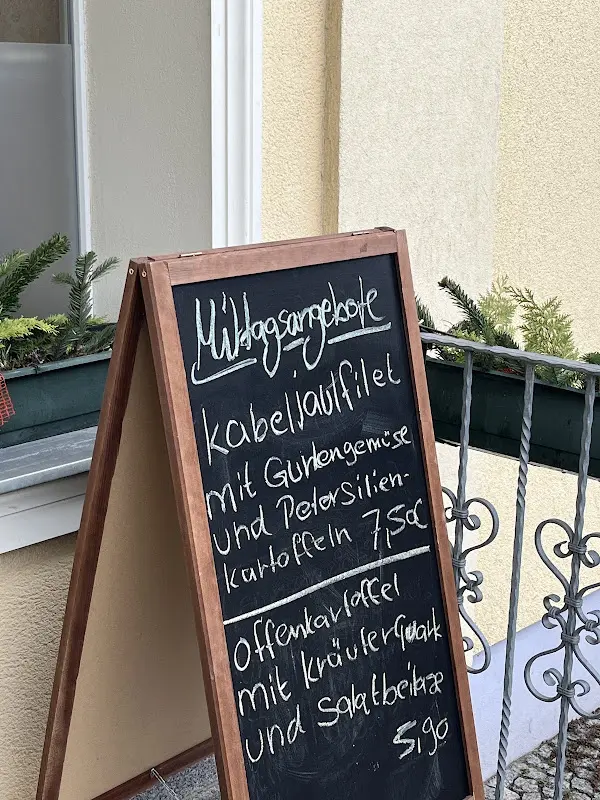 Mittagsangebote
Kabeljaufilet
mit Gurkengemüse
und Petersilien-
kartoffeln 7,50€
Offenkartoffel
mit Kräuterquark
und Salatbeilage
5,90